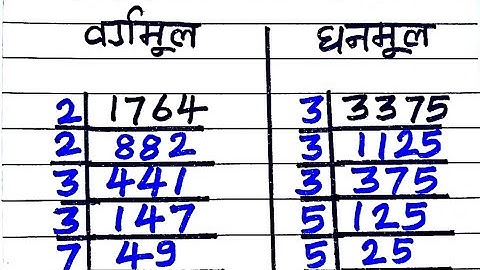 वर्गमूल घनमूल
2 1764 3 3375
2 882 3 1125
3 441 3 375
3 147 5 125
7 49 5 25